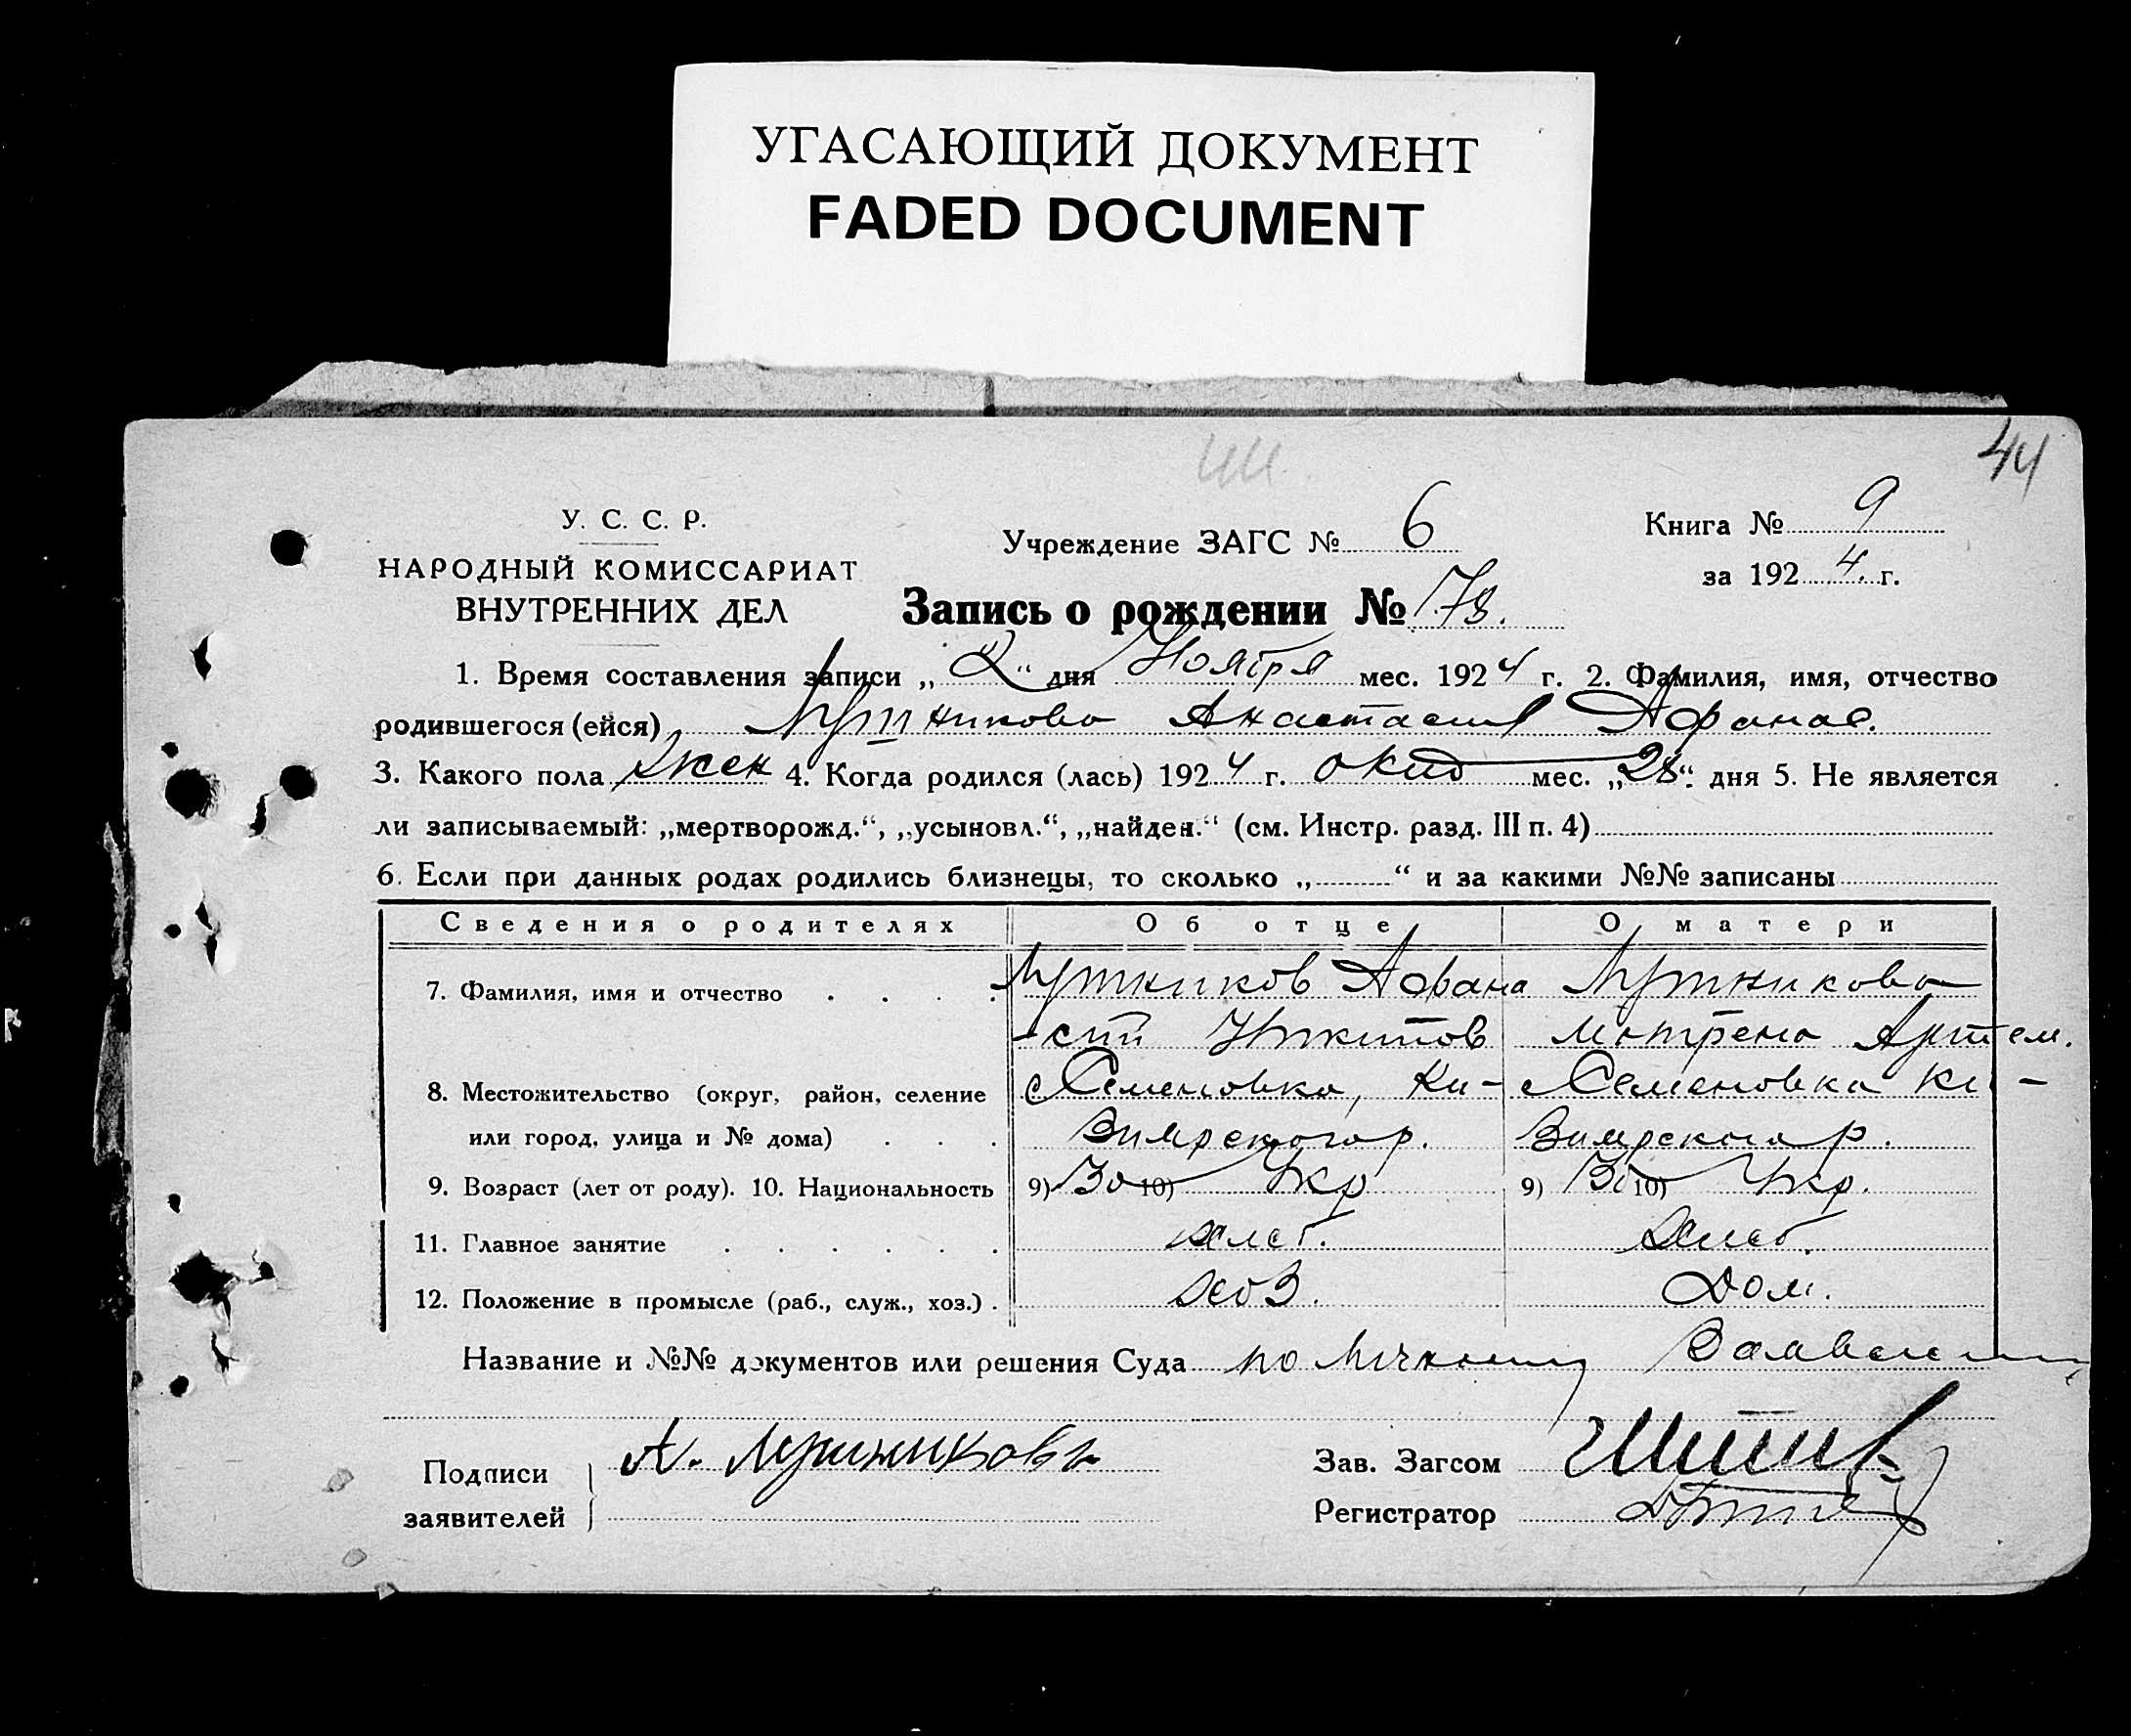 УГАСАЮЩИЙ ДОКУМЕНТ
FADED DOCUMENT
44
У. С. С. Р.
НАРОДНЫЙ КОМИССАРИАТ
ВНУТРЕННИХ ДЕЛ
Учреждение ЗАГС № 6
Книга № 9
за 1924 г.
Запись о рождении № 178.
1. Время составления записи „2“ дня Ноября мес. 1924 г. 2. Фамилия, имя, отчество
родившегося (ейся) Анастасия Афанас.
3. Какого пола жен 4. Когда родился (лась) 1924 г. мес. „28“ дня 5. Не является
ли записываемый: „мертворожд.“, „усыновл.“, „найден.“ (см. Инстр. разд. III п. 4)
6. Если при данных родах родились близнецы, то сколько „ “ и за какими №№ записаны
Сведения о родителях Об отце О матери
7. Фамилия, имя и отчество Афана
Никитов Мотрена Артем.
8. Местожительство (округ, район, селение Семеновка, Ки- Семеновка Ки-
или город, улица и № дома)
9. Возраст (лет от роду). 10. Национальность 9) 30 10) Укр 9) 30 10) Укр.
11. Главное занятие хлеб. хлеб.
12. Положение в промысле (раб., служ., хоз.) хоз. Дом.
Название и №№ документов или решения Суда по личному
Подписи
заявителей
А.
Зав. Загсом
Регистратор